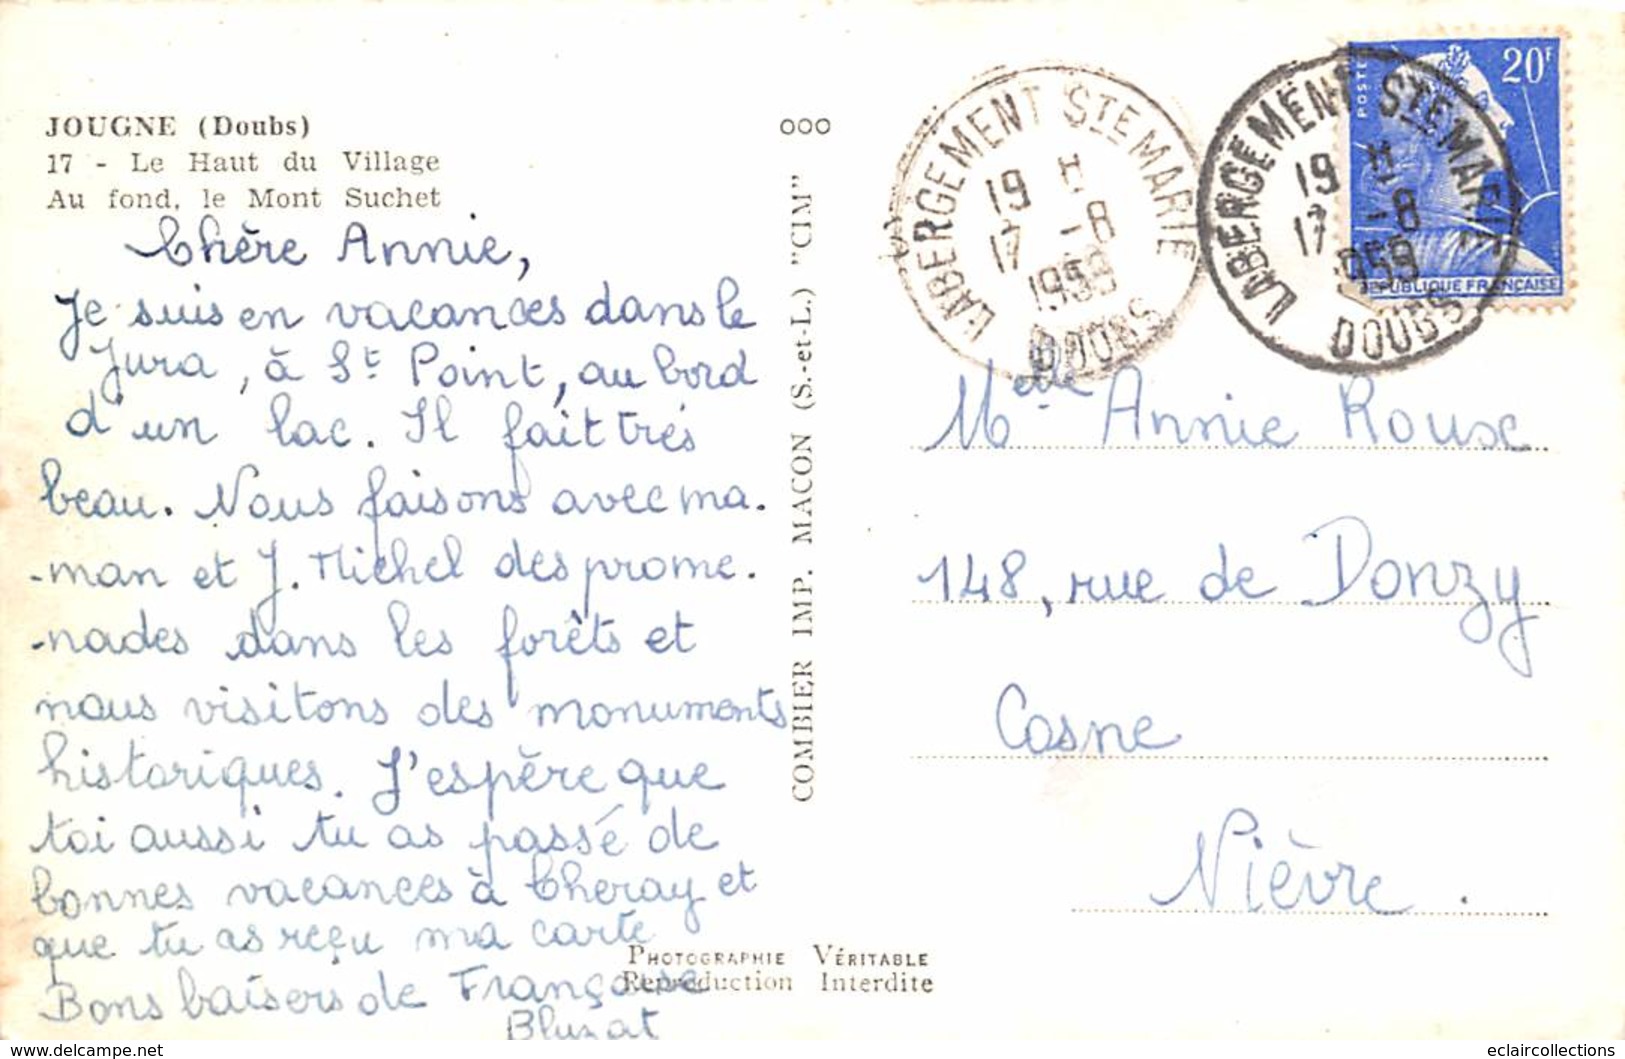 JOUGNE (Doubs)
17 - Le Haut du Village
Au fond, le Mont Suchet
Chère Annie,
Je suis en vacances dans le
Jura, à St Point, au bord
d'un lac. Il fait très
beau. Nous faisons avec ma-
-man et J. Michel des prome-
-nades dans les forêts et
nous visitons des monuments
historiques. J'espère que
toi aussi tu as passé de
bonnes vacances à Cheray et
que tu as reçu ma carte
Bons baisers de Françoise
Bluzat
COMBIER IMP. MACON (S.-et-L.) "CIM"
PHOTOGRAPHIE VÉRITABLE
Reproduction Interdite
LABERGEMENT STE MARIE
19 H
17 -8
1959
DOUBS
LABERGEMENT STE MARIE
19 H
17 -8
1959
DOUBS
POSTES
20F
REPUBLIQUE FRANÇAISE
Melle Annie Roux
148, rue de Donzy
Cosne
Nièvre.
www.delcampe.net
eclaircollections